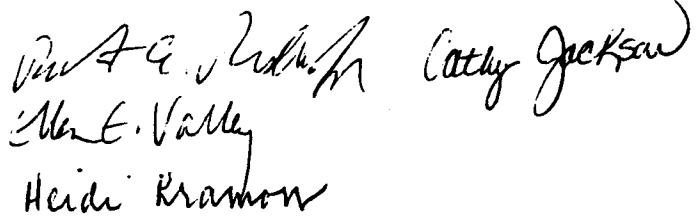 Cathy Jackson
Ellen E. Valley
Heidi Kramon